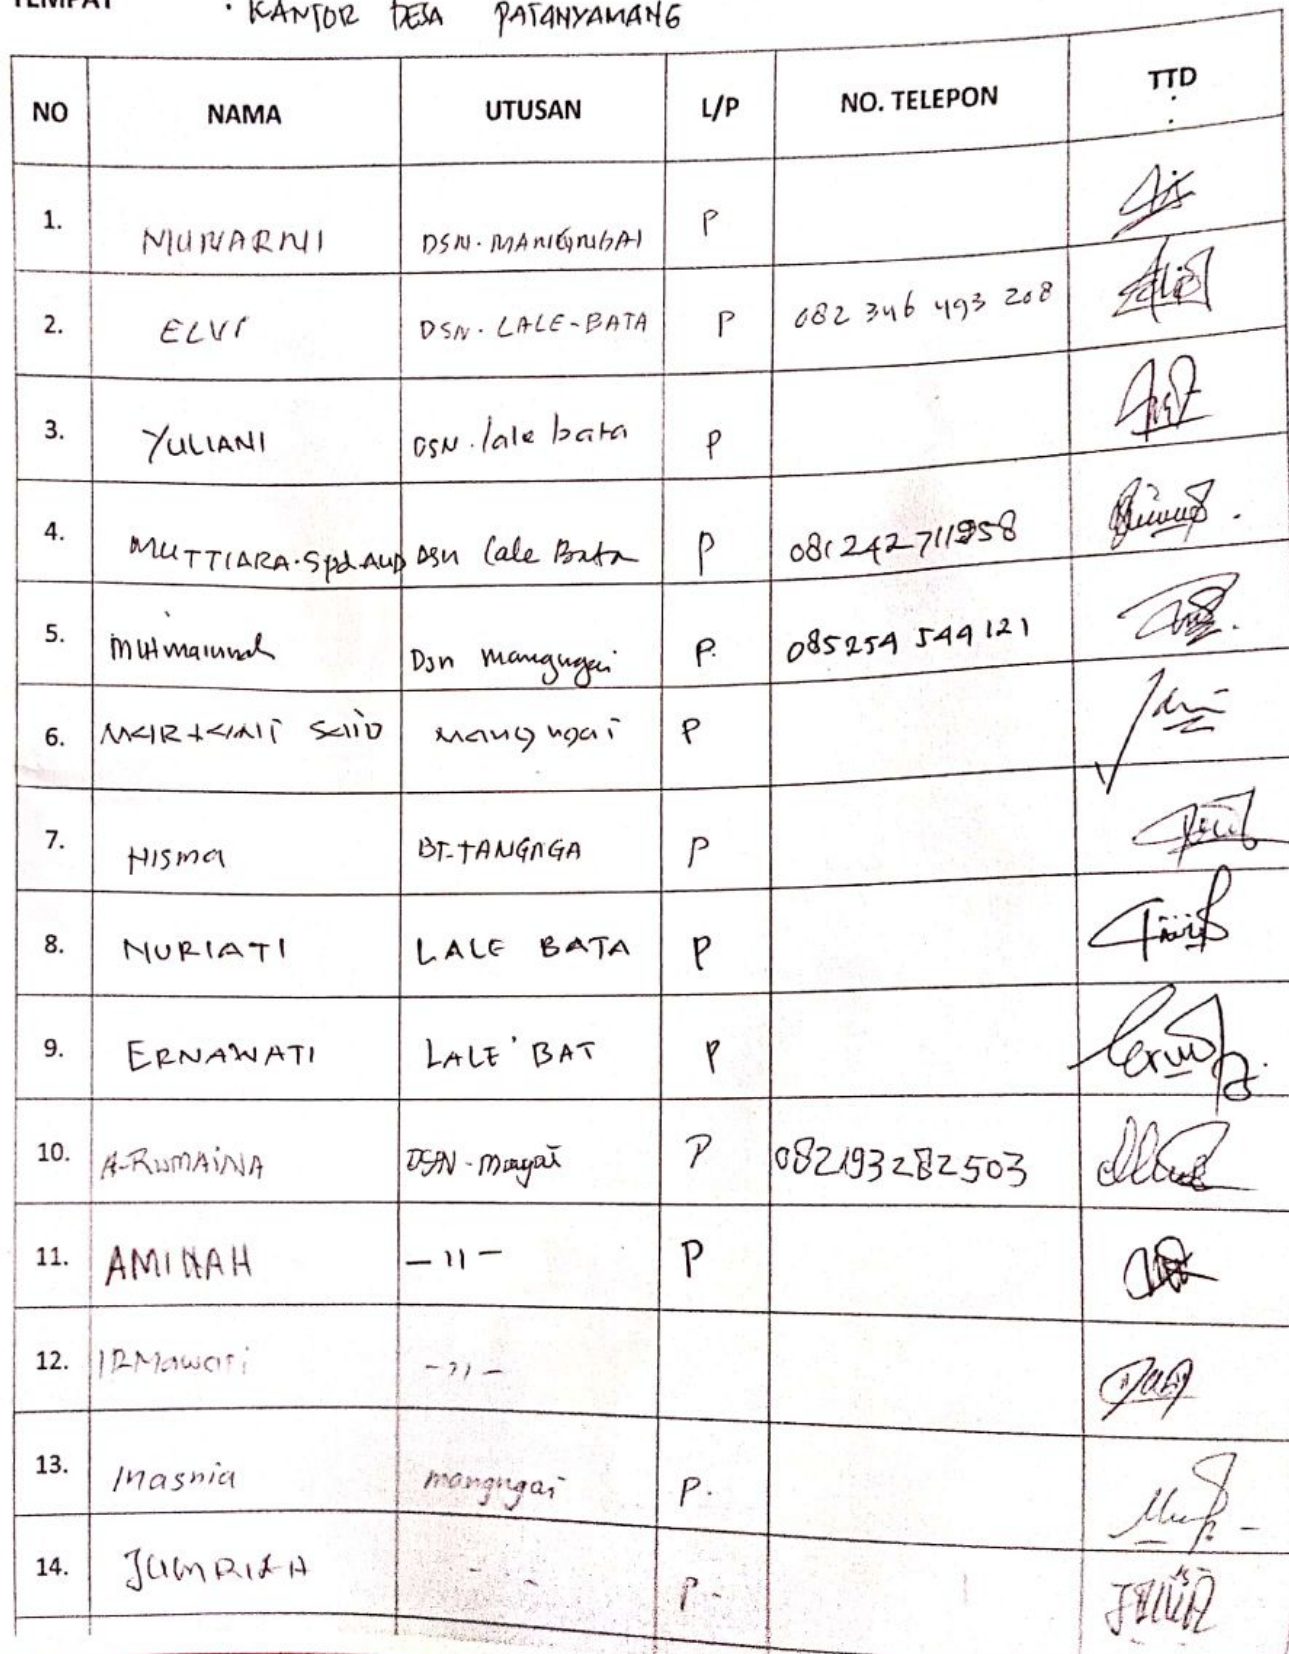 TEMPAT : KANTOR DESA PATANYAMANG
NO NAMA UTUSAN L/P NO. TELEPON TTD
1. MUNARNI DSN. MANGNGAI P
2. ELVI DSN. LALE-BATA P 082 346 493 208
3. YULIANI DSN. lale bata P
4. MUTTIARA. Spd. AUD Dsn Lale Bata P 081242711958
5. Muthmainnah Dsn mangngai P. 085254 544 121
6. SAID mangngai P
7. HISMA BT-TANGNGA P
8. NURIATI LALE BATA P
9. ERNAWATI LALE' BAT P
10. A-RUMAINA DSN. Mangai P 082193282503
11. AMINAH -11- P
12. IRMawati -11-
13. Masnia mangngai P.
14. JUMRIAH - - P -